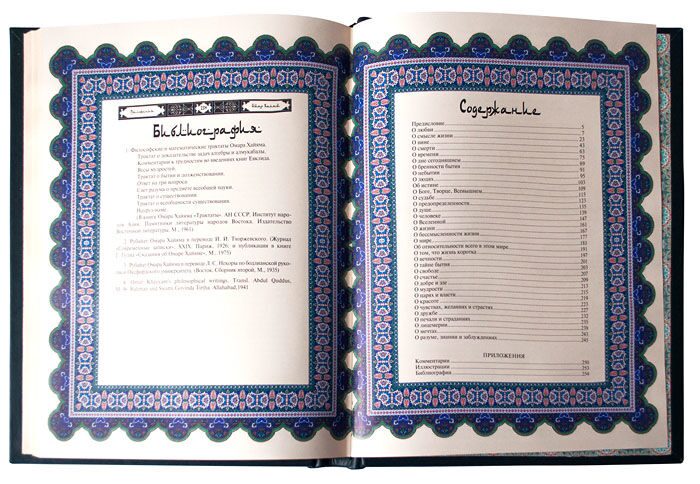 Омар Хайям
Библиография
1. Философские и математические трактаты Омара Хайяма.
Трактат о доказательстве задач алгебры и алмукабалы.
Комментарии к трудностям во введениях книг Евклида.
Весы мудростей.
Трактат о бытии и долженствовании.
Ответ на три вопроса.
Свет разума о предмете всеобщей науки.
Трактат о существовании.
Трактат о всеобщности существования.
Науруз-наме.
(В книге: Омар Хайям «Трактаты». АН СССР. Институт наро-
дов Азии. Памятники литературы народов Востока. Издательство
Восточная литература, М., 1961)
Робайат Омара Хайяма в переводе И. И. Тхоржевского. (Журнал
«Современные записки», XXIX, Париж, 1926; и публикация в книге
«Сказания об Омаре Хайяме», М., 1975)
Робайат Омара Хайяма в переводе Л. С. Некоры по бодлианской руко-
писи Оксфордского университета. (Восток. Сборник второй, М., 1935)
Omar Khayyam's philosophical writings. Transl. Abdul Quddus,
Rahman and Swami Govinda Tirtha. Allahabad, 1941
Содержание
Предисловие 5
О любви 7
О смысле жизни 23
О вине 43
О смерти 65
О времени 75
О дне сегодняшнем
О бренности бытия
О небытии 91
О людях 95
Об истине
О Боге, Творце, Всевышнем
О судьбе
О предопределенности
О душе
О человеке
О Вселенной
О жизни
О бессмысленности жизни
О мире
Об относительности всего в этом мире
О том, что жизнь коротка
О вечности
О тайне бытия
О свободе
О счастье
О добре и зле
О мудрости
О царях и власти
О красоте
О чувствах, желаниях и страстях
О дружбе
О печали и страданиях
О лицемерии
О мечтах
О разуме, знании и заблуждениях
ПРИЛОЖЕНИЯ
Комментарии 250
Иллюстрации 253
Библиография 254